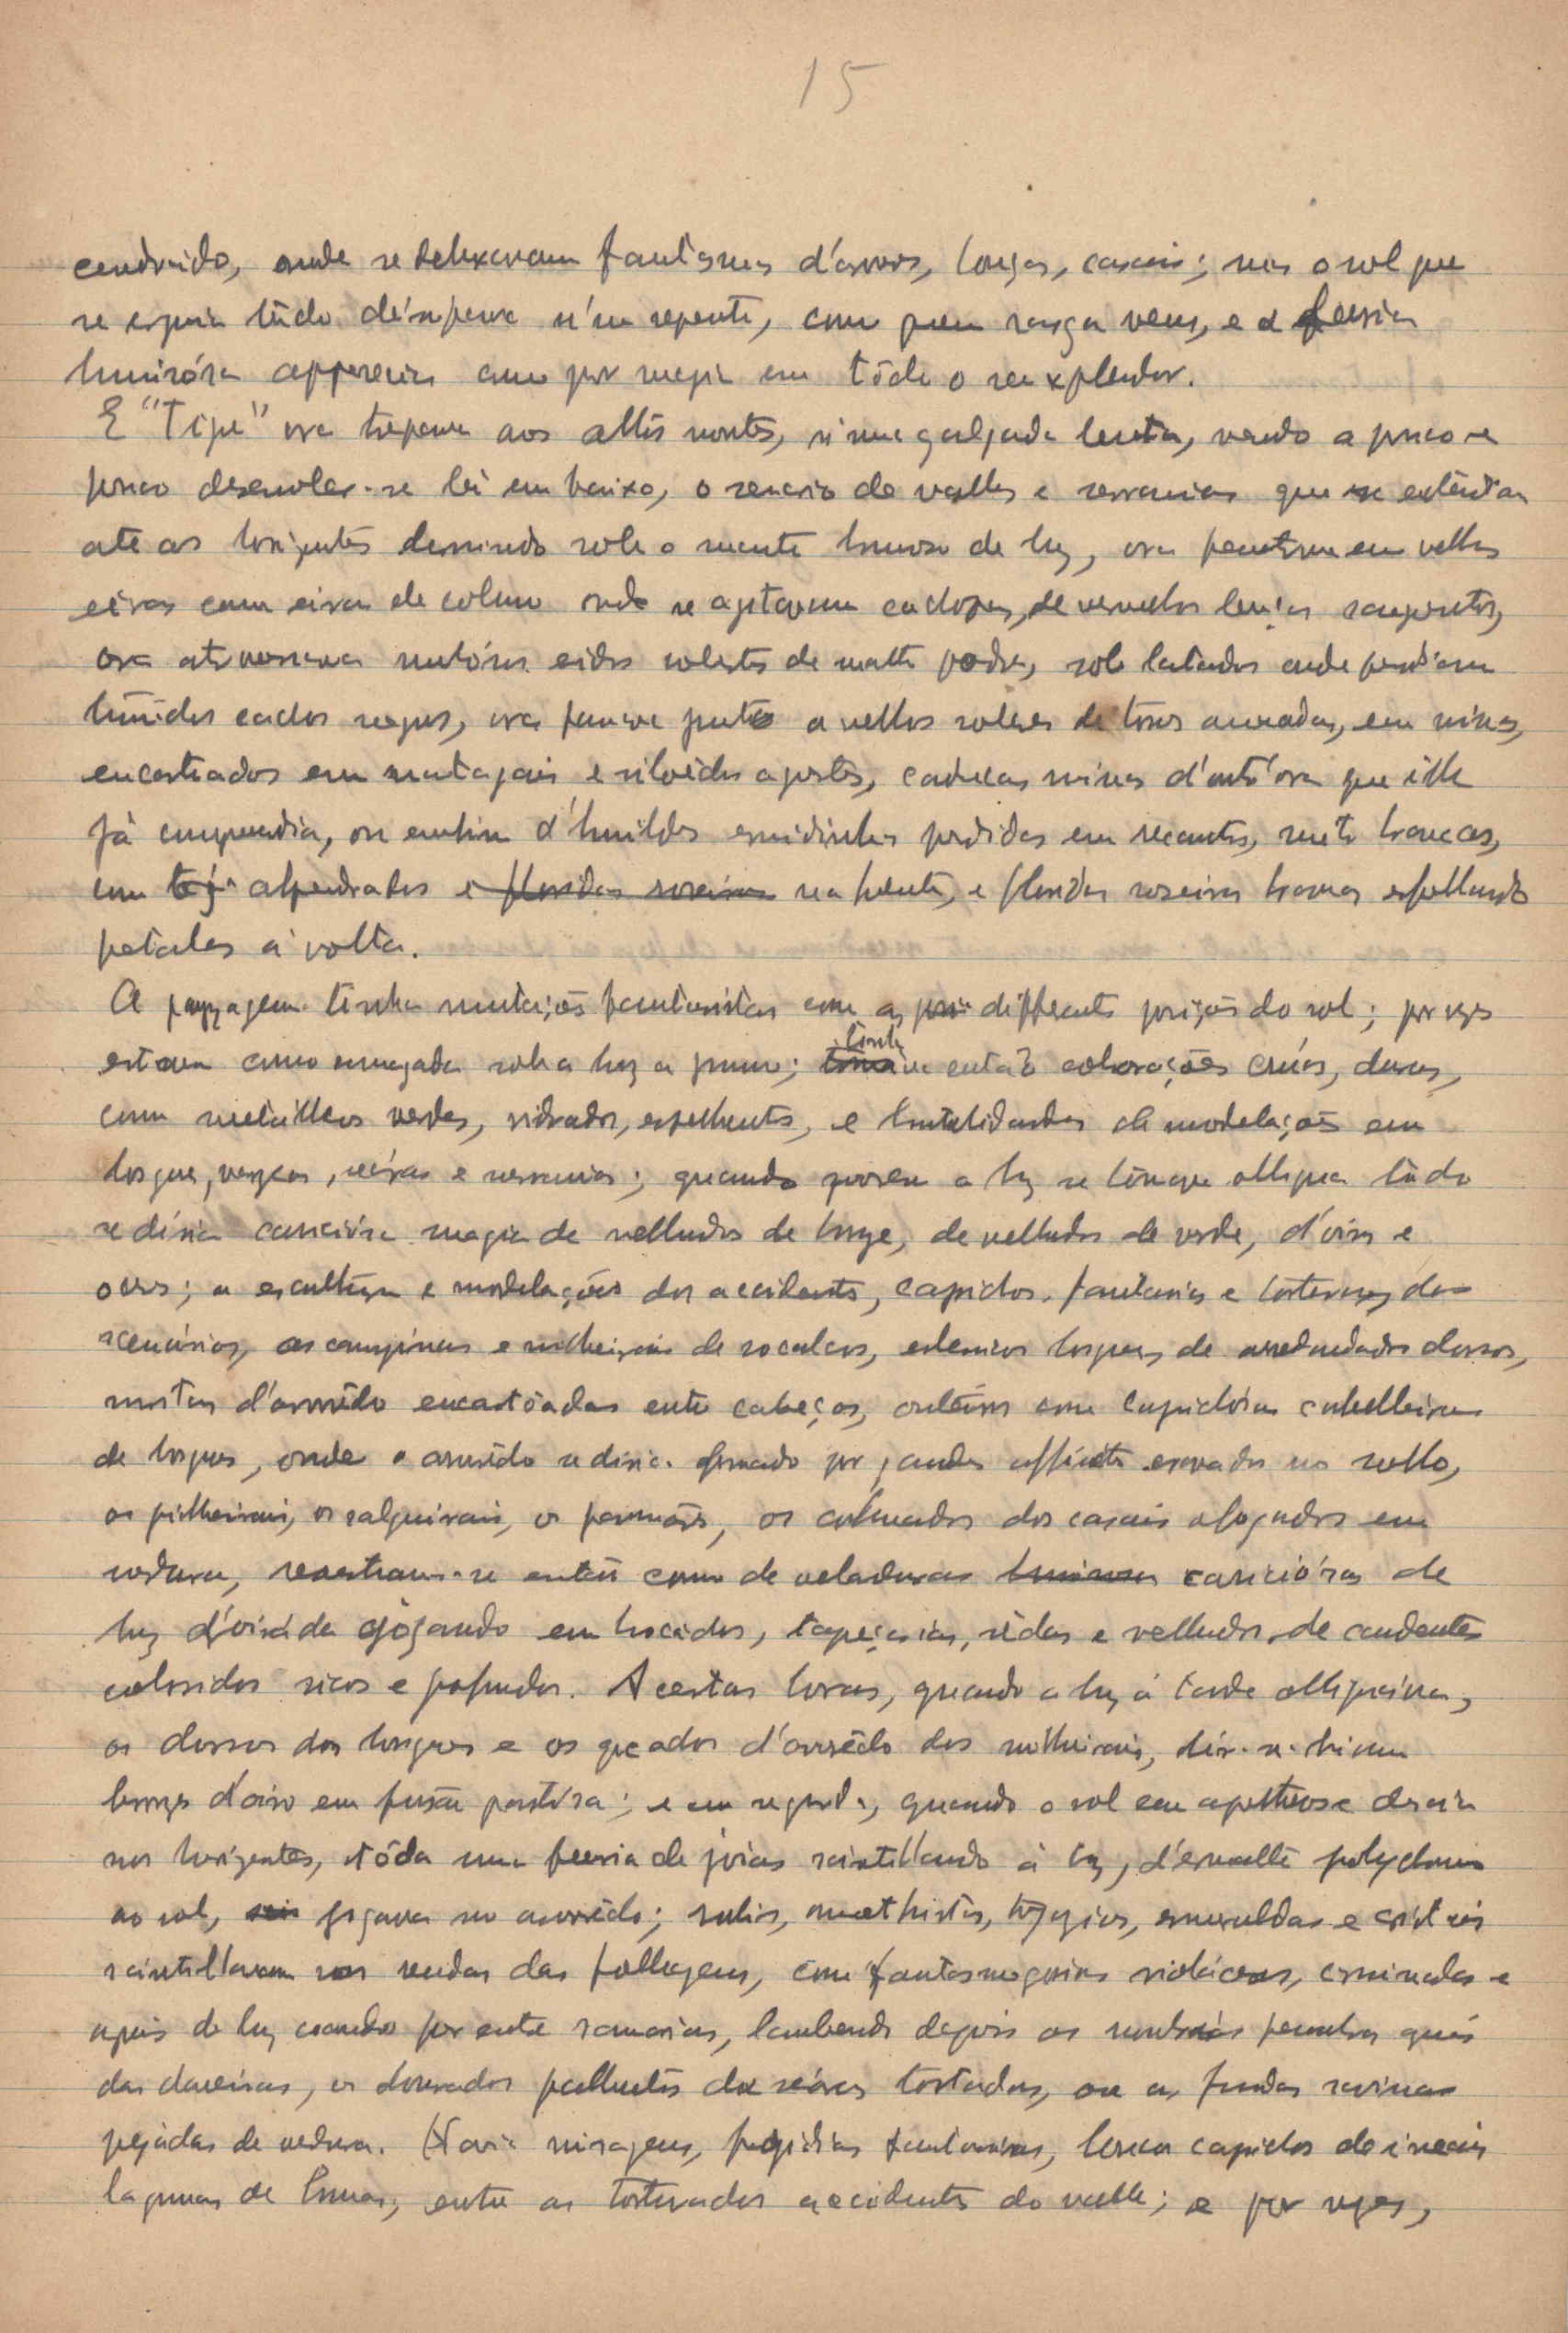 15
cendrado, onde se debuxavam fantasmas d'arvores, longas, casaes; mas o sol que
se erguia tudo dissipava n'um repente, como quem rasga veus, e a feeria
luminósa apparecia como por magia em tôdo o seu explendor.
E "Tipe" ora trepava aos altos montes, n'uma galgada lenta, vendo a pouco e
pouco desenrolar-se lá em baixo, o scenario de valles e serranias que se extendiam
até aos horisontes dormindo sob o manto brumoso de luz, ora penetrava em velhas
eiras de colmo onde se agitavam de vermelhos lenços
ora atravessava eidos cobertos de matto podre, sob latadas onde pendiam
tumidos cachos negros, ora passava junto a velhos solares de torres ameadas, em ruinas,
encastrados em matagais e silvêdos agrestes, caducas ruinas d'outr'ora que elle
já comprendia, ou emfim d'humildes ermidinhas perdidas em recantos, muito brancas,
com alpendrados e floridas roseiras na frente, e floridas roseiras bravas esfolhando
petalas á volta.
A paysagem tinha mutações fantasistas com as differentes posições do sol; por vezes
estava como esmagada sob a luz a prumo; tinha então colorações crúas, duras,
com metallicos verdes, vidrados, espelhentos, e brutalidades de modelações em
bosques, varzeas, seáras e serranias; quando porem a luz se tornava obliqua tudo
se diria cariciósa magia de velludos de bronze, de velludos de verde, d'oiro e
ocres; a escultura e modelações dos accidentes, caprichos, fantasias e torturas dos
scenários, as campinas e milheirais de socalcos, extensos bosques de arredondados dorsos,
moitas d'arvorêdo encastôadas entre cabeços, outeiros com caprichósas cabelleiras
de bosques, onde o arvorêdo se diria formado por grandes cravados no sollo,
os pinheirais, os salgueirais, os os colmados dos casais afogados em
verdura, revestiam-se então como de veladuras luminosas cariciósas de
luz d'oirada jogando em brocados, tapeçarias, sêdas e velludos de candentes
coloridos ricos e profundos. A certas horas, quando a luz á tarde
os dorsos dos bosques e os d'arvorêdo dos milheirais, dir-se-hiam
bronzes d'oiro em fusão pastósa; e em seguida, quando o sol em apotheose descia
nos horizontes, tôda uma feeria de joias scintillando á luz, d'esmalte polychromo
ao sol, jogava no arvorêdo; rubis, amethistas, topazios, esmeraldas e cristais
scintillavam nas rendas das folhagens, com fantasmagorias violáceas, carminadas e
de luz coando por entre ramarias, lambendo depois os
das os dourados das seáras tostadas, ou as fundas ravinas
pejadas de verdura. Havia miragens, fugidias fantasias, loucos caprichos de irreais
lagunas de brumas, entre os torturados accidentes do valle; e por vezes,